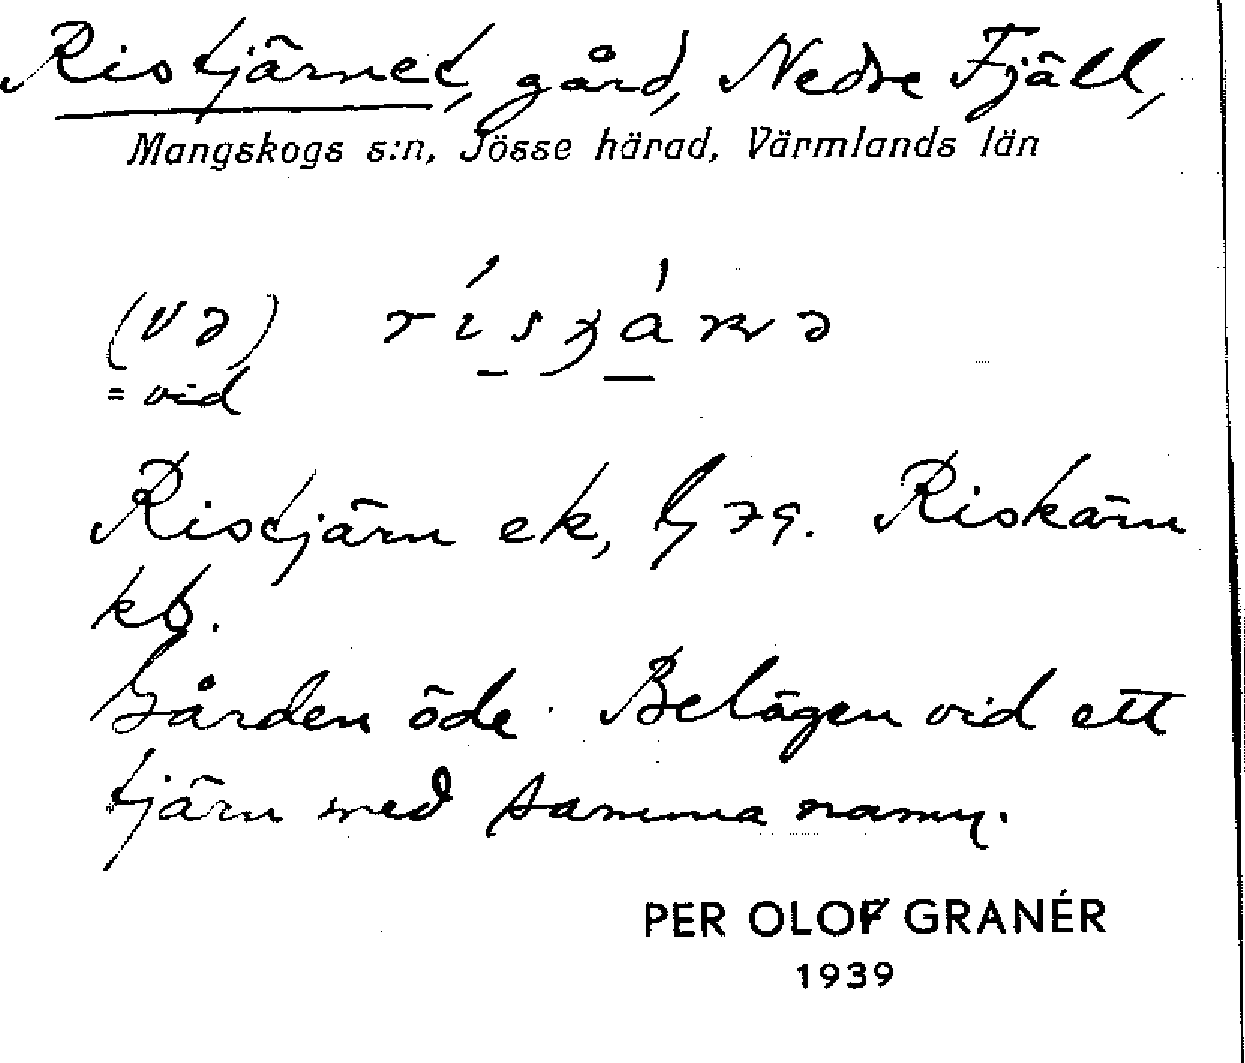 Ristjärnet, gård, Nedre Fjäll,
Mangskogs s:n, Jösse härad, Värmlands län
(və)
= vid
Ristjärn ek, Riskärn
kb.
Gården öde. Belägen vid ett
tjärn med samma namn.
PER OLOF GRANÉR
1939